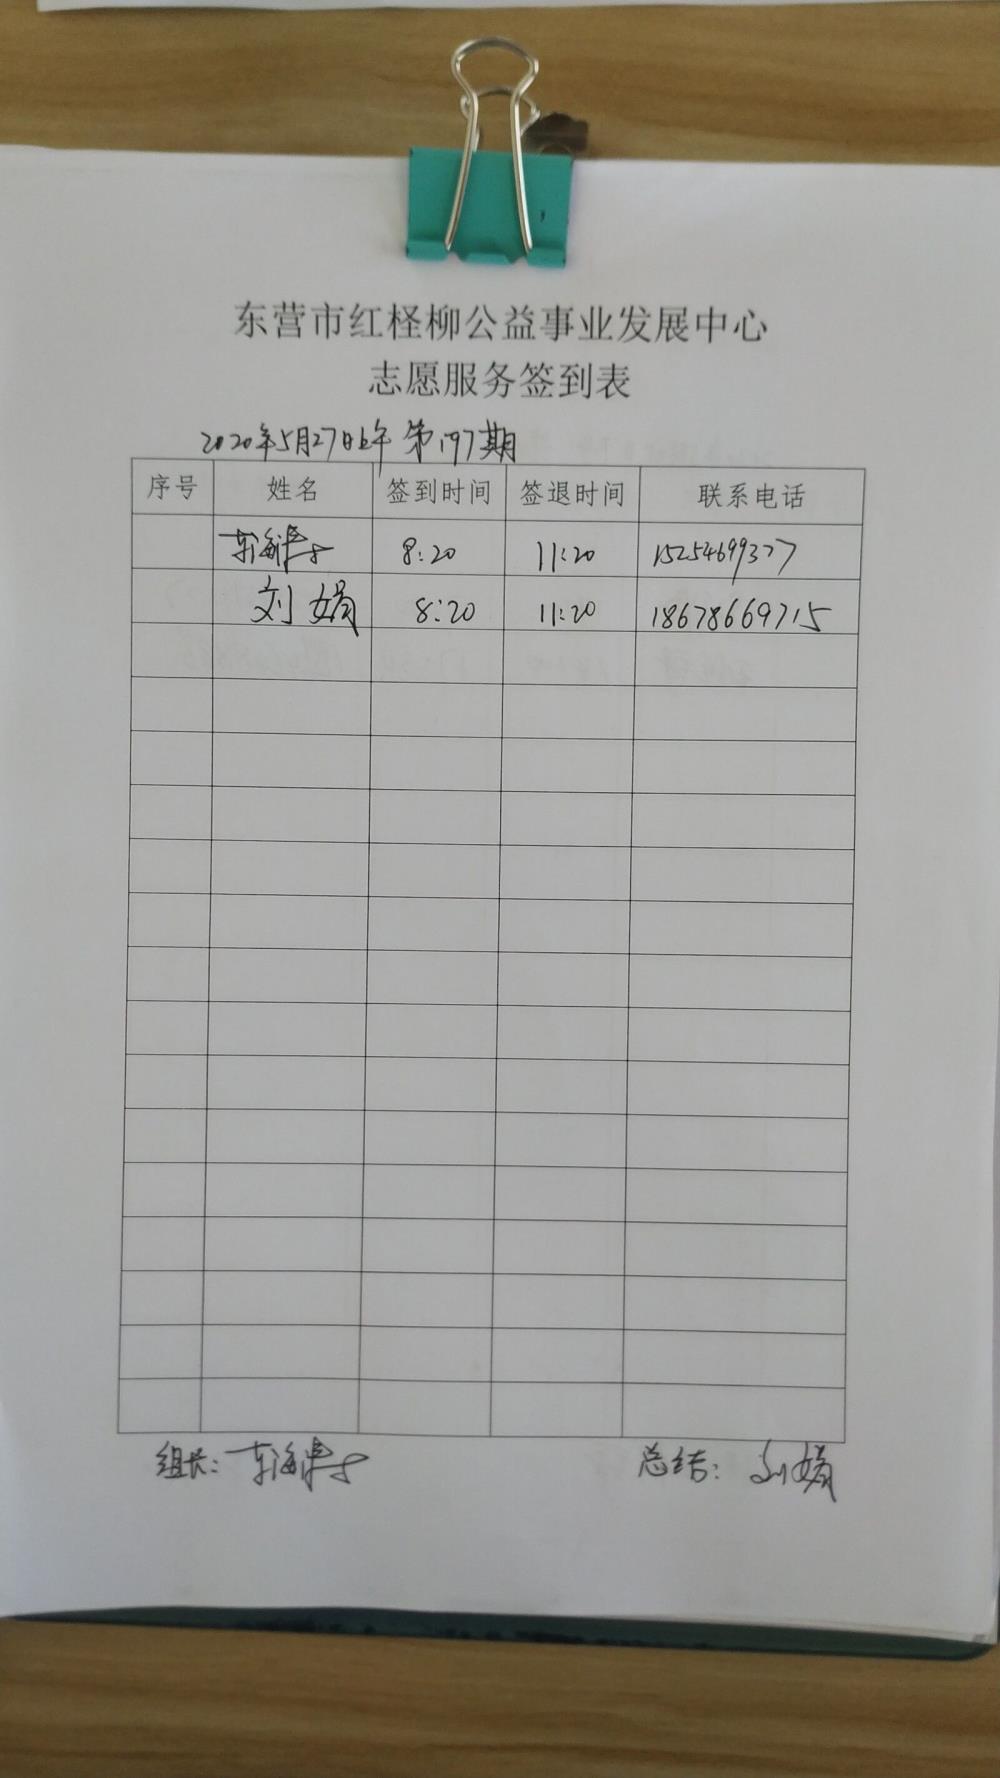 东营市红柽柳公益事业发展中心
志愿服务签到表
2020年5月27日上午 第197期
序号 姓名 签到时间 签退时间 联系电话
8:20 11:20 15254699377
刘娟 8:20 11:20 18678669715
组长: 总结: 刘娟